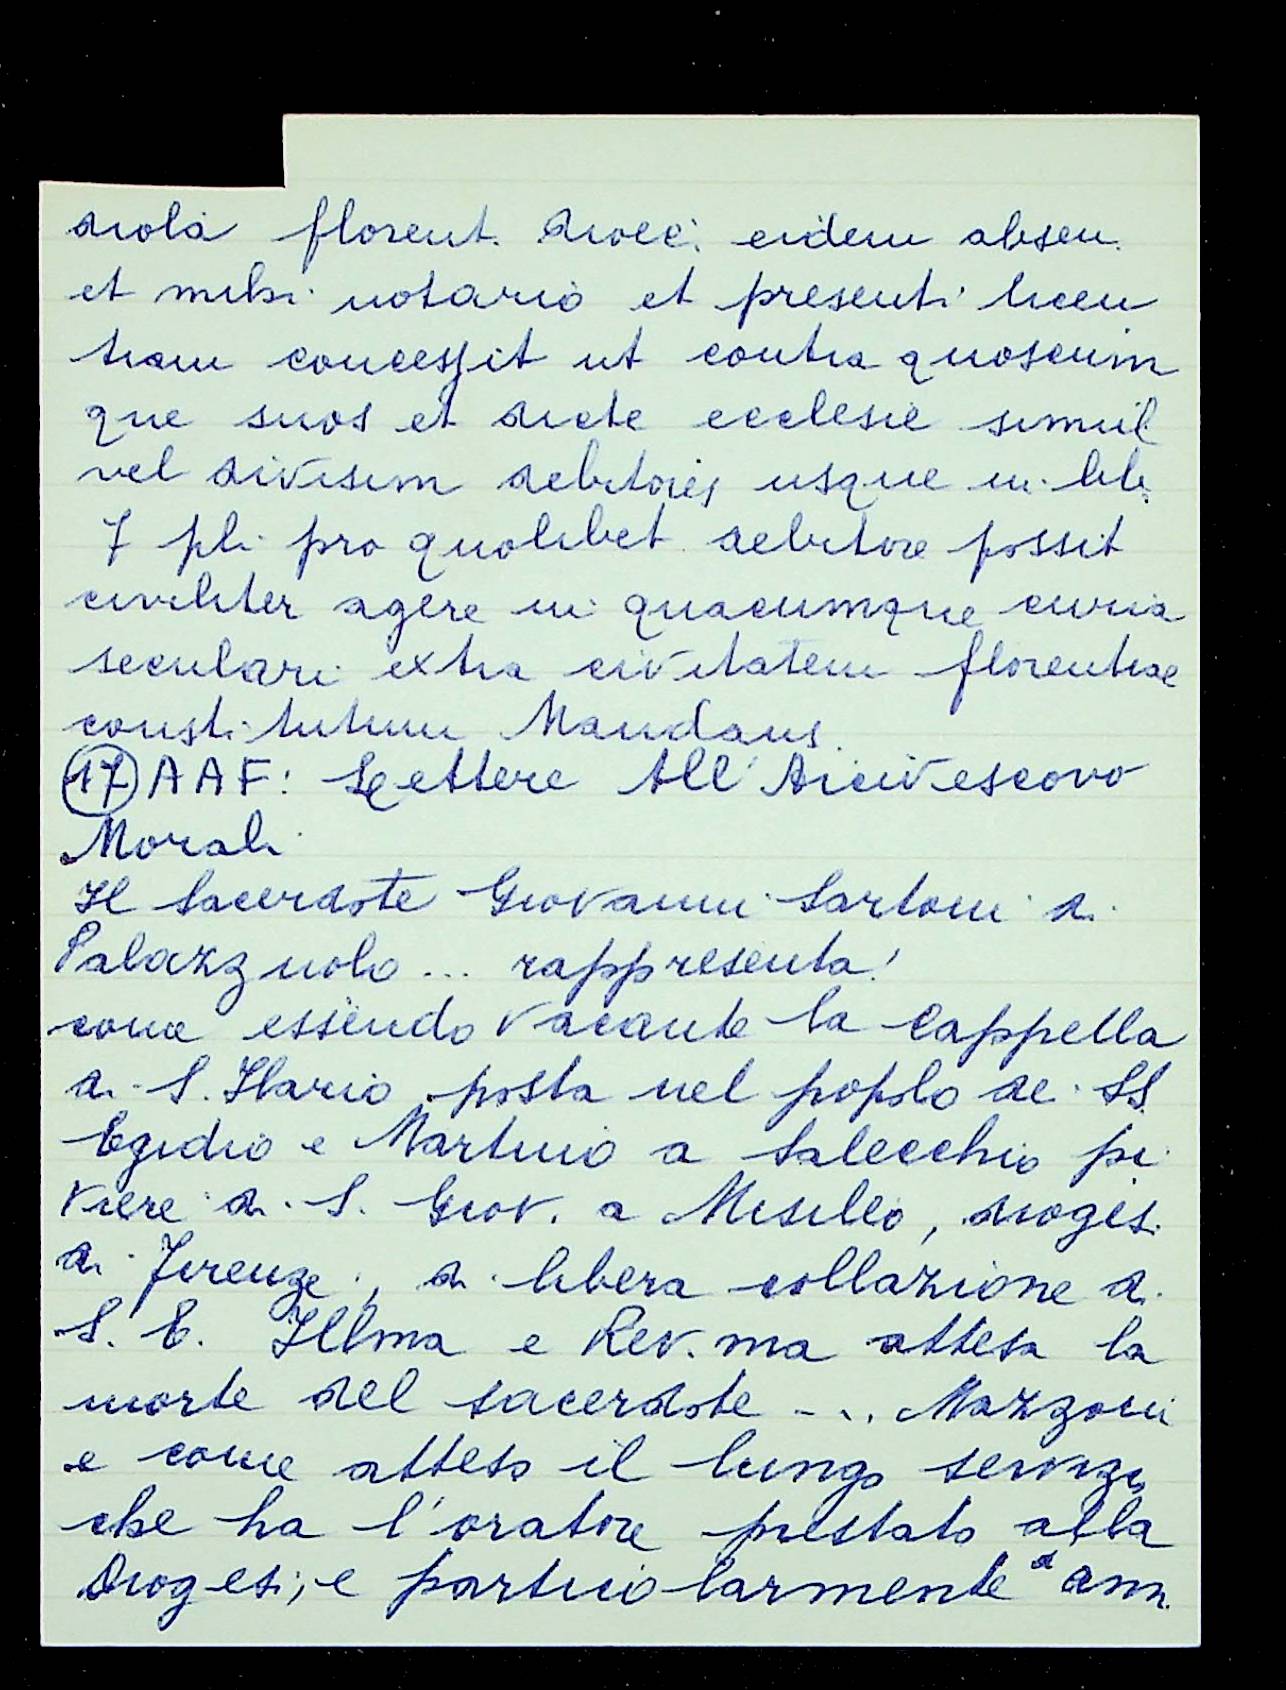 diola florent. dioec. eidem absen.
et mihi notario et presenti licen
tiam concessit ut contra quoscum
que suos et dicte ecclesie simul
vel divisim debitores usque in lib.
7 pli pro quolibet debitore possit
civiliter agere in quacumque curia
seculari extra civitatem florentiae
constitutum Mandans.
17 AAF: Lettere All' Arcivescovo
Morali
Il Sacerdote Giovanni Sartoni di
Palazzuolo ... rappresenta!
come essendo vacante la Cappella
di S. Ilario posta nel popolo dei SS
Egidio e Martino a Salecchio pi
viere di S. Giov. a Misileo, diogesi
di Firenze, di libera collazione di
S. E. Illma e Rev.ma attesa la
morte del sacerdote ... Mazzoni
e come atteso il lungo servizio
che ha l'oratore prestato alla
Diogesi, e particolarmente d'ann.